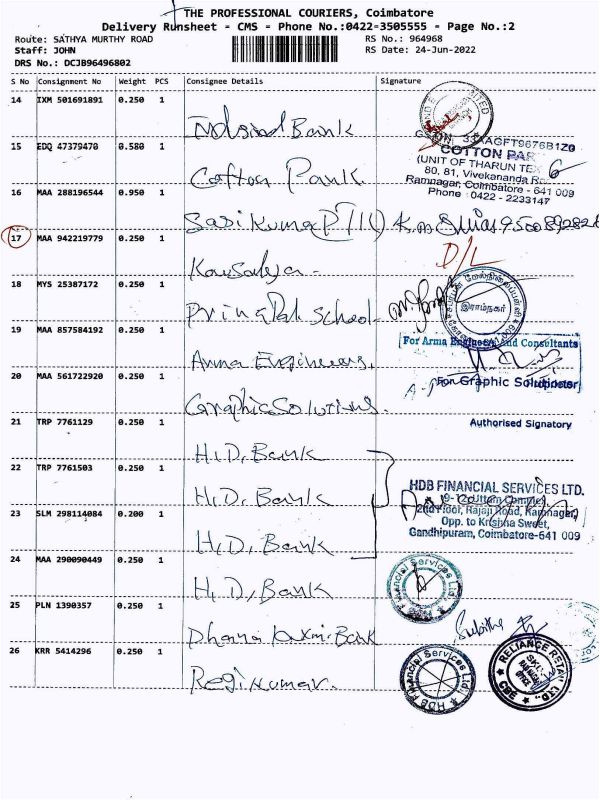 THE PROFESSIONAL COURIERS, Coimbatore
Delivery Runsheet - CMS - Phone No.:0422-3505555 - Page No.:2
Route: SATHYA MURTHY ROAD
RS No.: 964968
Staff: JOHN
RS Date: 24-Jun-2022
DRS No.: DCJB96496802
S No Consignment No Weight PCS Consignee Details Signature
14 IXM 501691891 0.250 1
Indusind Bank
15 EDQ 47379470 0.580 1
Cotton Park
33AAGFT9676B1Z0
COTTON PAR
(UNIT OF THARUN TEX
80, 81, Vivekananda Ro
Ramnagar, Coimbatore - 641 009
Phone : 0422 - 2233147
16 MAA 288196544 0.950 1
Sasi Kumar
17 MAA 942219779 0.250 1
Kausalya
D/L
18 MYS 25387172 0.250 1
Principal School
இராம்நகர்
19 MAA 857584192 0.250 1
Arma Engineers.
For Arma Engineers and Consultants
20 MAA 561722920 0.250 1
Graphic Solutions.
For Graphic Solutions
21 TRP 7761129 0.250 1
Authorised Signatory
H.D. Bank
22 TRP 7761503 0.250 1
H.D. Bank
HDB FINANCIAL SERVICES LTD.
2nd Floor, Rajaji Road, Ramnagar,
Opp. to Krishna Sweet,
Gandhipuram, Coimbatore-641 009
23 SLM 298114084 0.200 1
H.D. Bank
24 MAA 290090449 0.250 1
H.D. Bank
Financial Services Ltd
25 PLN 1390357 0.250 1
Dhana Laxmi Bank
26 KRR 5414296 0.250 1
Regi Kumar.
HDB Financial Services Ltd.
RELIANCE RETAIL LTD.
CBE